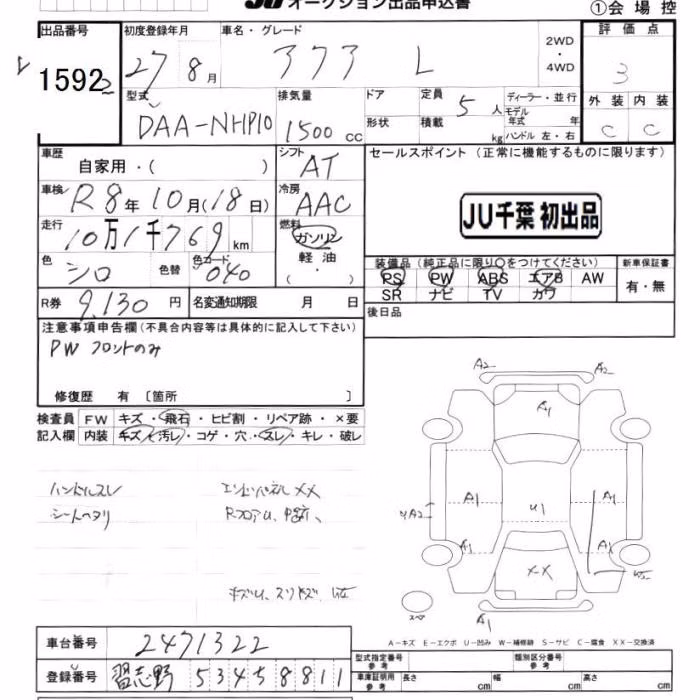 JU オークション出品申込書
①会場控
出品番号 初度登録年月 車名・グレード 評価点
1592 27 8月 アクア L 2WD・4WD 3
型式 排気量 ドア 定員 5人 ディーラー・並行 外装 内装
DAA-NHP10 1500cc 形状 積載 kg モデル年式 年 ハンドル 左・右 C C
車歴 自家用・( ) シフト AT セールスポイント(正常に機能するものに限ります)
車検 R8年10月(18日) 冷房 AAC JU千葉 初出品
走行 10万1千769km 燃料 ガソリン
色 シロ 色替 色コード 040 軽油・( ) 装備品(純正品に限り○をつけてください) 新車保証書
PS PW ABS エアB AW 有・無
SR ナビ TV カワ
R券 9,130円 名変通知期限 月 日 後日品
注意事項申告欄(不具合内容等は具体的に記入して下さい)
PW フロントのみ
修復歴 有〔箇所 〕
検査員 FW キズ・飛石・ヒビ割・リペア跡・×要
記入欄 内装 キズ・汚レ・コゲ・穴・スレ・キレ・破レ
ハンドルスレ エンドパネルXX
シートヘタリ RフロアU、
A2 A2
A1
A1 U1 A1
A2
A1 A1
XX
スペア
A1
A-キズ E-エクボ U-凹み W-補修跡 S-サビ C-腐食 XX-交換済
車台番号 2471322
登録番号 習志野 534 58811
型式指定番号 参考 類別区分番号 参考
車庫証明用 参考 長さ cm 幅 cm 高さ cm